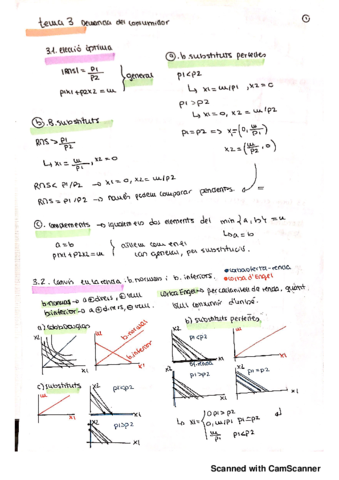 tema 3 Demanda del consumidor
1
3.1. elecció óptima
|RMS| = p1/p2
p1x1+p2x2 = m
} general
a. b. substituts perfectes
p1<p2
↳ x1 = m/p1, x2 = 0
p1 > p2
↳ x1 = 0, x2 = m/p2
p1 = p2 => x1 = (0, m/p1)
x2 = (m/p2, 0)
b. B. substituts
RMS > p1/p2
↳ x1 = m/p1, x2 = 0
RMS < p1/p2 → x1 = 0, x2 = m/p2
RMS = p1/p2 → només podem comparar pendents
c. complements → igualtat els dos elements del min {a, b} = u
↳ a = b
a = b
p1x1 + p2x2 = m
} cas general, per substitució.
3.2. Canvis en la renda: b. normals i b. inferiors.
corba oferta-renda
corba d'Engel
b. normal → a ⊕ diners, ⊕ vull
b. inferior → a ⊕ diners, ⊖ vull
Corba Engel → per cada nivell de renda, quant
vull consumir d'un bé.
a) Cobb-Douglas
b. normal
b. inferior
b) substituts perfectes
p1<p2
p1>p2
p1=p2
c) substituts
p1<p2
p1>p2
↳ x1 = { 0 p1 > p2
0, m/p1 p1 = p2
m/p1 p1<p2
d)
Scanned with CamScanner